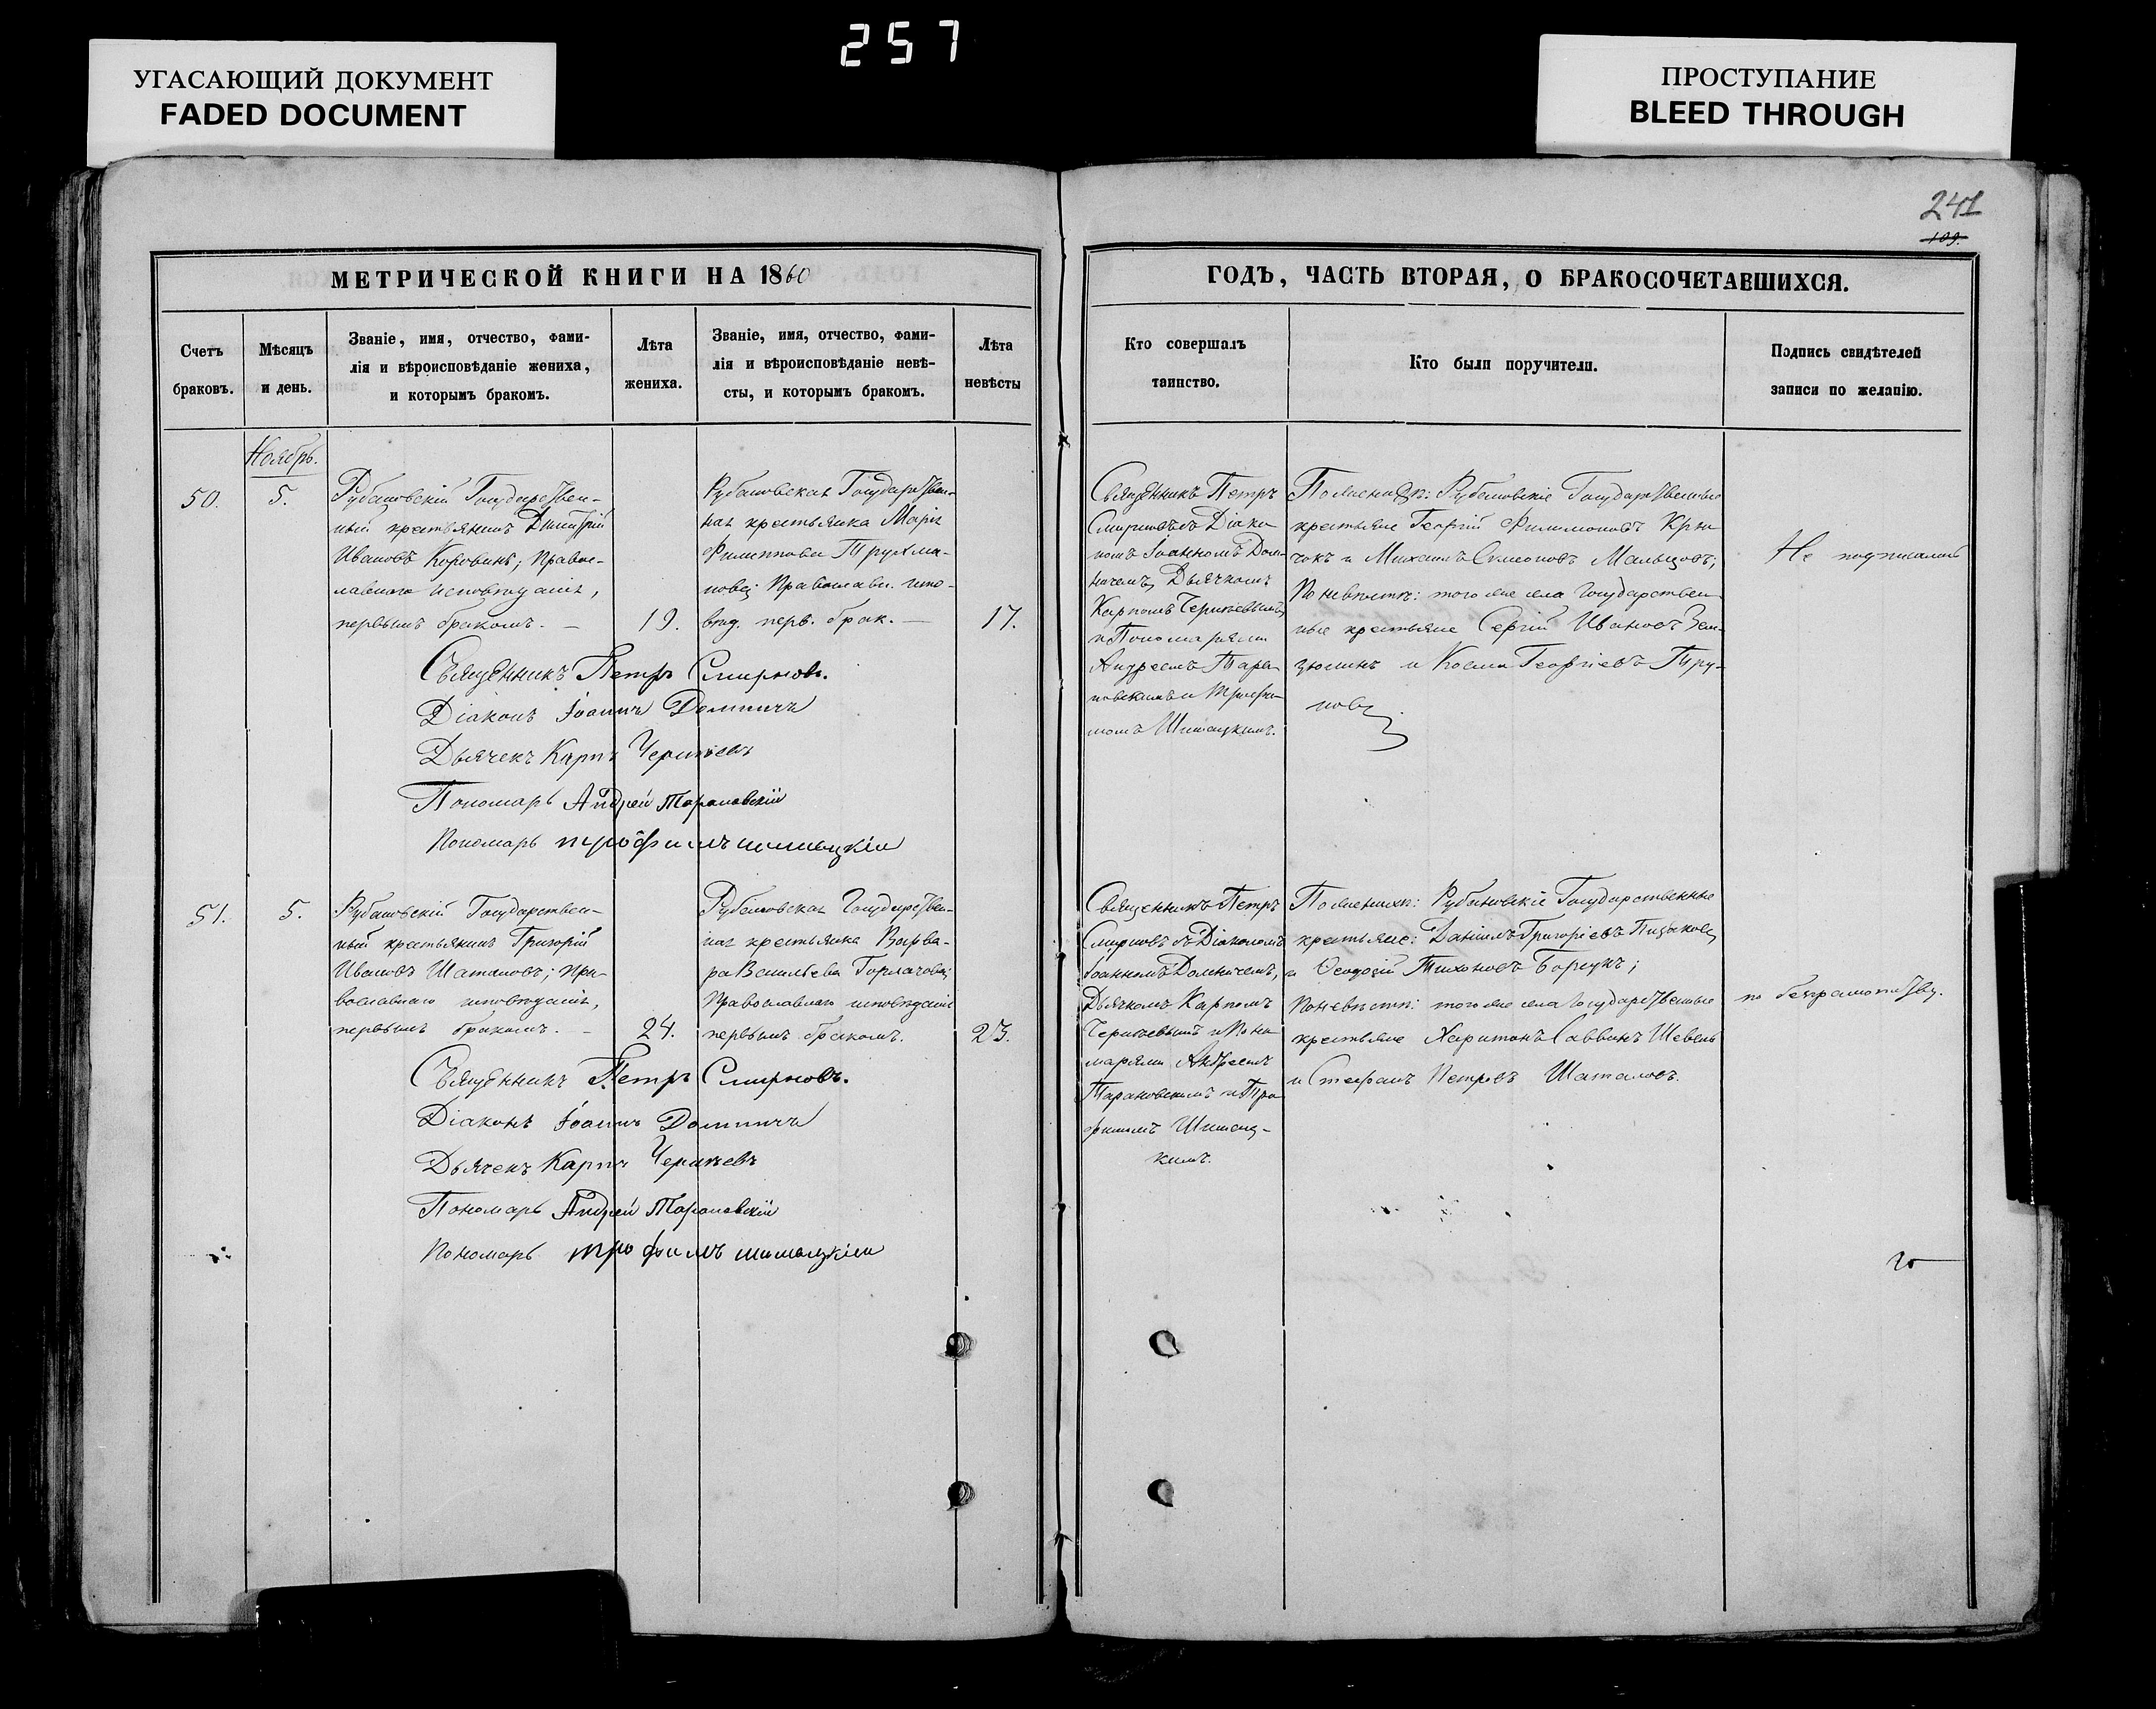 257
УГАСАЮЩИЙ ДОКУМЕНТ
FADED DOCUMENT
ПРОСТУПАНИЕ
BLEED THROUGH
241
109.
МЕТРИЧЕСКОЙ КНИГИ НА 1860
ГОДЪ, ЧАСТЬ ВТОРАЯ, О БРАКОСОЧЕТАВШИХСЯ.
Счетъ
браковъ.
Мѣсяцъ
и день.
Званіе, имя, отчество, фами-
лія и вѣроисповѣданіе жениха,
и которымъ бракомъ.
Лѣта
жениха.
Званіе, имя, отчество, фами-
лія и вѣроисповѣданіе невѣ-
сты, и которымъ бракомъ.
Лѣта
невѣсты
Кто совершалъ
таинство.
Кто были поручители.
Подпись свидѣтелей
записи по желанію.
Ноябрь.
50.
5.
Рубановскій Государствен-
ный крестьянинъ Димитрій
Ивановъ Коровинъ; Правос-
лавнаго исповѣданія,
первымъ бракомъ. —
19.
Рубановская Государствен-
ная крестьянка Марія
Филиппова Трухма-
нова; Православн. испо-
вѣд. перв. брак. —
17.
Священникъ Петръ
Смирновъ съ Діако
номъ Іоанномъ Дом-
ничемъ, Дьячкомъ
Карпомъ Черниевымъ
и Пономарями
Андреемъ Тара-
новскимъ и Трофи-
момъ Шишацкимъ.
По женихѣ: Рубановскіе Государственные
крестьяне Георгій Филимоновъ Крю
чокъ и Михаилъ Симеоновъ Мальцовъ;
По невѣстѣ: того же села Государствен
ные крестьяне Сергій Ивановъ
и Косма Георгіевъ Тру-
новъ.
Не подписались
Священникъ Петръ Смирновъ.
Діаконъ Іоаннъ Домничъ
Дьячекъ Карпъ Черниевъ
Пономарь Андрей Тарановскій
Пономарь трофимъ шишацкій
51.
5.
Рубановскій Государствен-
ный крестьянинъ Григорій
Ивановъ Шаталовъ; пра-
вославнаго исповѣданія,
первымъ бракомъ. —
24.
Рубановская Государствен-
ная крестьянка Варва-
ра Васильева Горлачова;
Православнаго исповѣданія
первымъ бракомъ.
23.
Священникъ Петръ
Смирновъ съ Діакономъ
Іоанномъ Домничемъ,
Дьячкомъ Карпомъ
Черниевымъ и Поно
марями Андреемъ
Тарановскимъ и Тро
фимомъ Шишац-
кимъ.
По женихѣ: Рубановскіе Государственные
крестьяне: Даніилъ Григоріевъ
и Ѳеодосій Тихоновъ Борщукъ;
По невѣстѣ: того же села Государственные
крестьяне Харитонъ Саввинъ Шевель
и Стефанъ Петровъ Шаталовъ.
по безграмотству.
Священникъ Петръ Смирновъ.
Діаконъ Іоаннъ Домничъ
Дьячекъ Карпъ Черниевъ
Пономарь Андрей Тарановскій
Пономарь трофимъ шишацкій